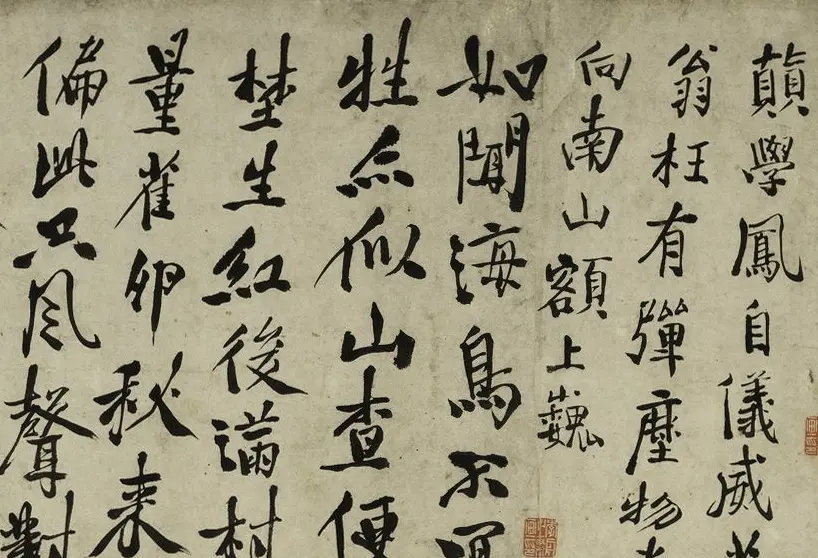 顛學鳳自儀威
翁枉有彈塵物
向南山額上巍
如聞海鳥不
牲亦似山查便
埜生紅後滿村
量雀卵秋来
偏此只風聲對